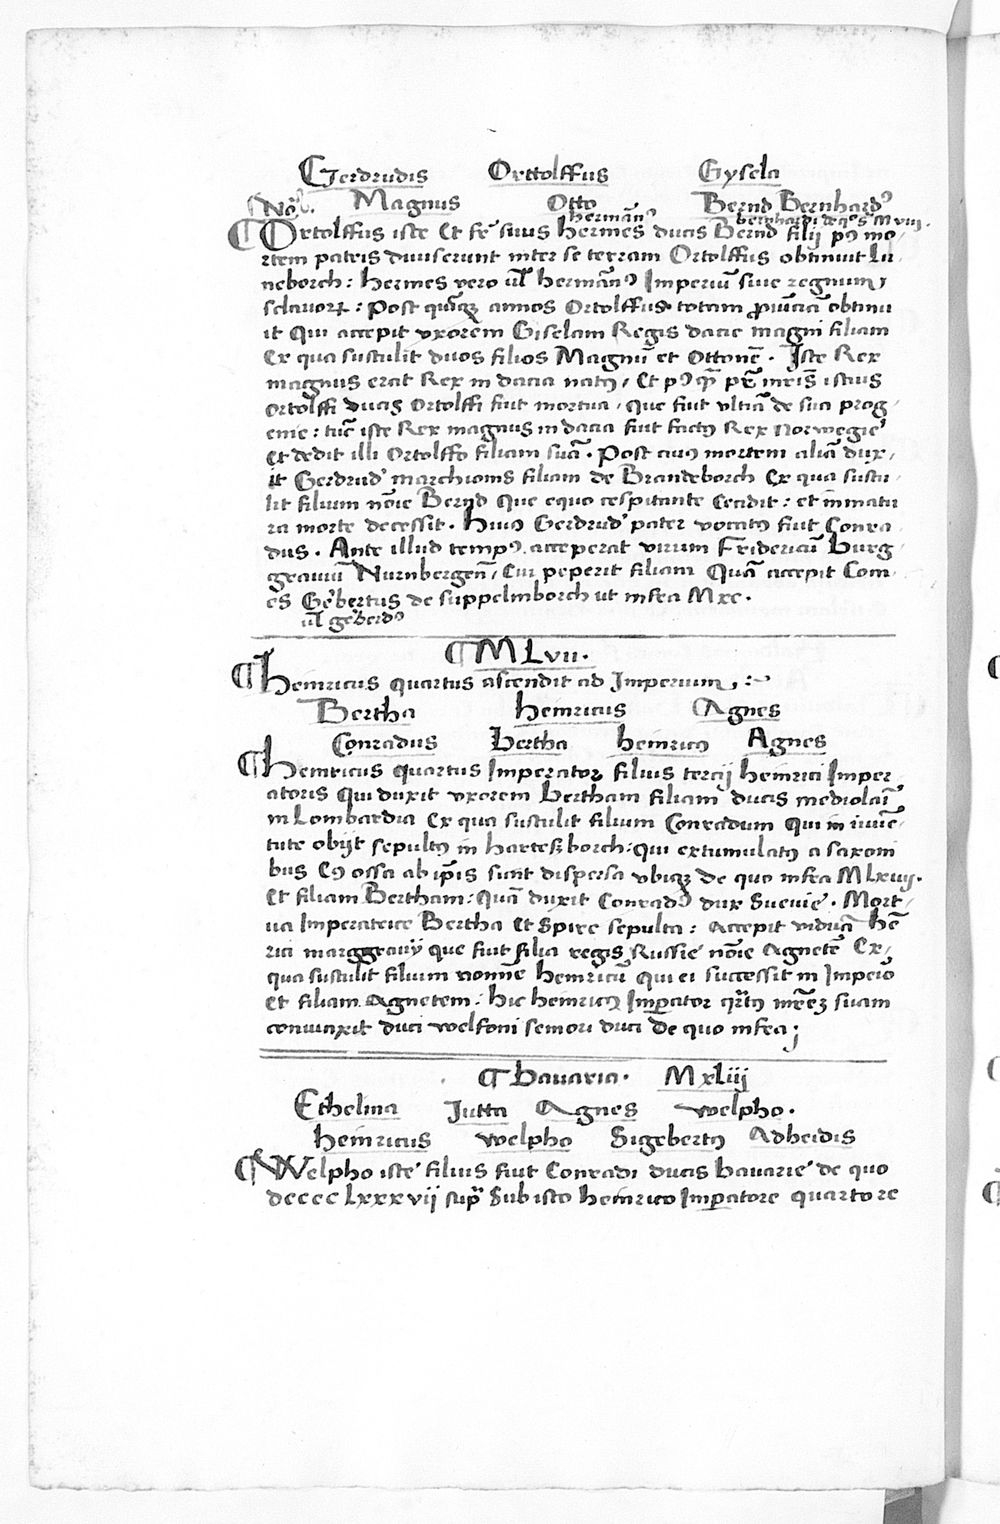 Gerdrudis Orttolffus Gysela
No. Magnus Otto Bernd Bernhardꝰ
hermānꝰ bernhardi de qͦ s̄ M viij.
¶ Ortolffus iste Et fr̄ suus hermes ducis Bernd filij pꝰ mo-
rtem patris diuiserunt inter se terram Ortolffus obtinuit lu-
neborch: hermes vero ul̄ hermānꝰ Imperiū siue regnum
sclauoꝝ: Post quīqꝫ annos Ortolffus totam ꝓuīciā obtinu
it Qui accepit vxorem Giselam Regis dacie magni filiam
Ex qua sustulit duos filios Magnū et Ottonē. Iste Rex
magnus erat Rex in dacia natꝰ, Et pꝰ qꝫ pr̄ mr̄is istius
ortolffi ducis Ortolffi fuit mortua, que fuit vltīa de sua prog-
enie: tūc iste Rex magnus in dacia fuit factꝰ Rex Norwegie
Et dedit illi Ortolffo filiam suā. Post cuiꝰ mortem aliā dux-
it Gerdrud' marchionis filiam de Brandeborch Ex qua sustu-
lit filium nōie Bernd Que equo cespitante Cecidit: et inmatu
ra morte decessit. Huiꝰ Gerdrud' pater vocatꝰ fuit Conra-
dus. Ante illud tempꝰ acceperat virum Fridericū burg-
grauiū Nurnbergen̄, Cui peperit filiam Quā accepit Com-
es Gēbertus de suppelinborch ut infra Mxc.
ul̄ gēberdꝰ
¶ M Lvii.
¶ Heinricus quartus ascendit ad Imperium,:~
Bertha heinricus Agnes
Conradus bertha heinricꝰ Agnes
¶ Heinricus quartus Imperator filius tercij heinrici Imper
atoris Qui duxit vxorem bertham filiam ducis mediolaī
in Lombardia Ex qua sustulit filium Conradum Qui in iuuē-
tute obijt sepultꝰ in harteßborch: qui extumulatꝰ a saxoni
bus Eꝰ ossa ab ip̄is sunt dispersa vbiqꝫ de quo infra M Lxvij.
Et filiam Bertham: Quā duxit Conradꝰ dux Sueuie. Mort-
ua Imperatrice Bertha Et Spire sepulta: accepit viduā hē
rici marggrauij que fuit filia regis Russie nōie Agnetē Ex-
qua sustulit filium nomīe heinricū Qui ei successit in Impeio
Et filiam Agnetem: hic heinricꝰ Imꝑator qr̄tꝰ mr̄eꝫ suam
coniuncxit duci welfoni seniori duci De quo infra;
¶ bauaria. M xLiij
Ethelina Iutta Agnes welpho.
heinricus welpho Sigebertꝰ Adheidis
¶ Welpho iste filius fuit Conradi ducis bauarie de quo
dcccc Lxxxvij sup̄ Sub isto heinrico Imꝑatore quarto re